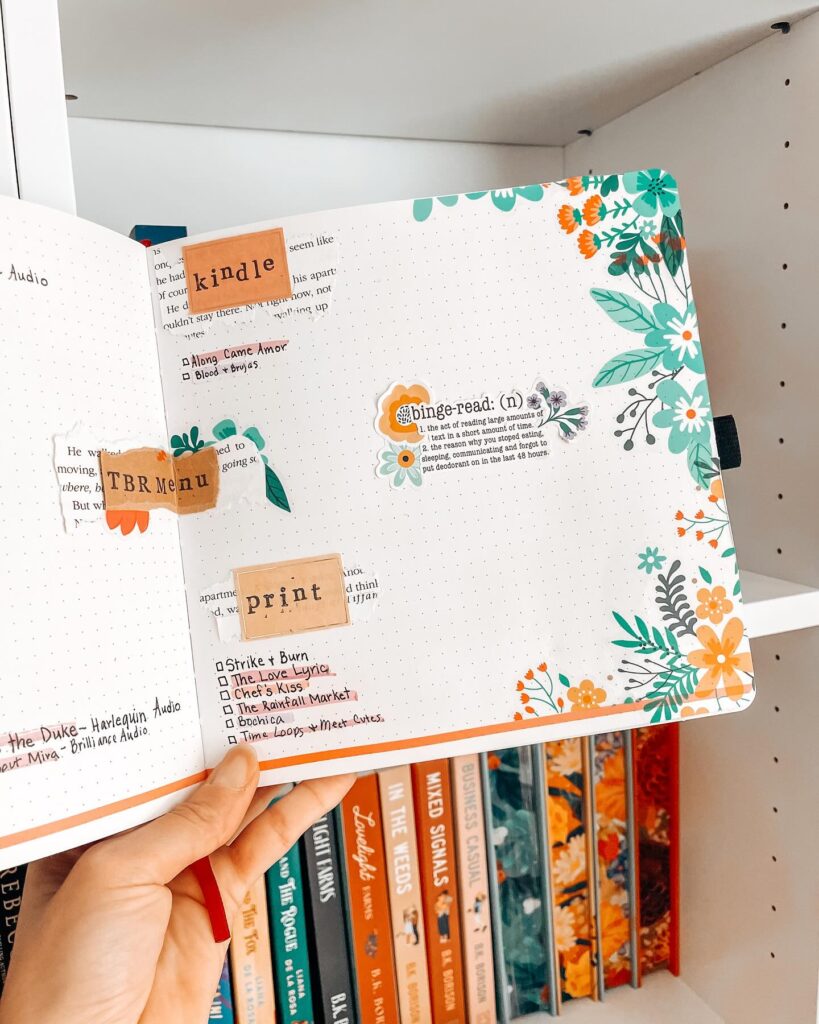 - Audio
the Duke - Harlequin Audio
Mira - Brilliance Audio
seem like
he had
his apart
of cour
He d
ouldn't stay there. Not right now, not
walling up
kindle
Along Came Amor
Blood & Brujas
He
moving,
to
going
But
TBR Menu
binge-read: (n)
1. the act of reading large amounts of
text in a short amount of time.
2. the reason why you stoped eating,
sleeping, communicating and forgot to
put deodorant on in the last 48 hours.
apartme
d think
print
Strike & Burn
The Love Lyric
Chef's Kiss
The Rainfall Market
Bochica
Time Loops & Meet Cutes
REBEC
AND THE FOX
LIANA DE LA ROSA
AND THE ROGUE
LIANA DE LA ROSA
LIGHT FARMS
B.K. BOR
Lovelight FARMS
B.K. BOR
IN THE WEEDS
B.K. BORISON
MIXED SIGNALS
B.K. BORISON
BUSINESS CASUAL
B.K. BORISON